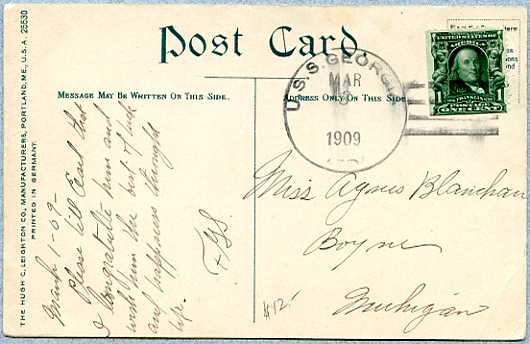 Post Card
MESSAGE MAY BE WRITTEN ON THIS SIDE.
ADDRESS ONLY ON THIS SIDE
THE HUGH C. LEIGHTON CO., MANUFACTURERS, PORTLAND, ME., U.S.A. 25530
PRINTED IN GERMANY.
U.S.S. GEORGI
MAR
1909
UNITED STATES OF
AMERICA
1
POSTAGE
ONE CENT
March 1-09-
Please tell Earl that
I congratulate him and
wish him the best of luck
and happiness through
life.
Miss Agnes Blanchan
Boyne
Michigan
$12